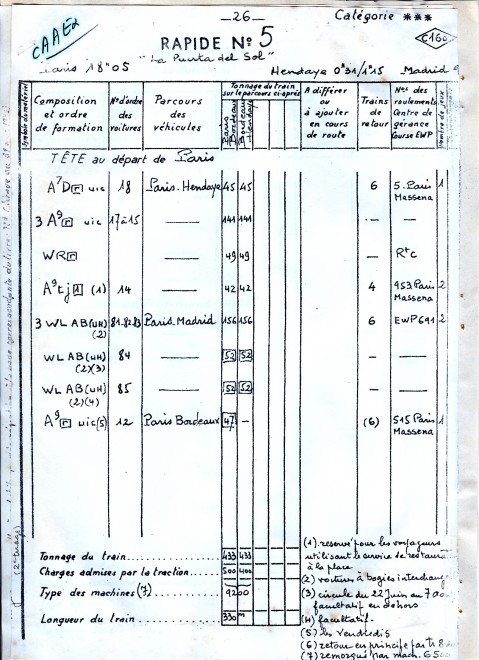 —26—
Catégorie ***
CAAE2
RAPIDE N° 5
C160
"La Puerta del Sol"
Paris 18h05 Hendaye 0h31/1h15 Madrid 9
Symbole du matériel
Composition et ordre de formation
N°d'ordre des voitures
Parcours des véhicules
Tonnage du train sur le parcours ci-après
Paris Bordeaux
Bordeaux Hendaye
A différer ou à ajouter en cours de route
Trains de retour
Nos des roulements Centre de gérance Course EWP
Nombre de jeux
TÊTE au départ de Paris
A7D r uic 18 Paris-Hendaye 45 45 6 5-Paris Massena 1
3 A9 r uic 17 à 15 —— 141 141 — —
WR r —— 49 49 — Rtc
A9tj A (1) 14 —— 42 42 4 953 Paris Massena 2
3 WL AB (UH) (2) 81.82.83 Paris.Madrid 156 156 6 EWP 691 2
WL AB (UH) (2)(3) 84 —— 52 52 — ——
WL AB (UH) (2)(4) 85 —— 52 52 — ——
A9 r uic (5) 12 Paris Bordeaux 47 — (6) 515 Paris Massena 1
Tonnage du train.............. 433 433
Charges admises par la traction...... 500 400
Type des machines (7)............ 9200
Longueur du train............... 330m
(1) reservé pour les voyageurs
utilisant le service de restaurat
à la place
(2) voitures à bogies interchange
(3) circule du 22 Juin au 7
facultatif en dehors
(4) facultatif.
(5) les Vendredis
(6) retour en principe par tr 8
(7) remorqué par mach. 6500
(2e tirage)